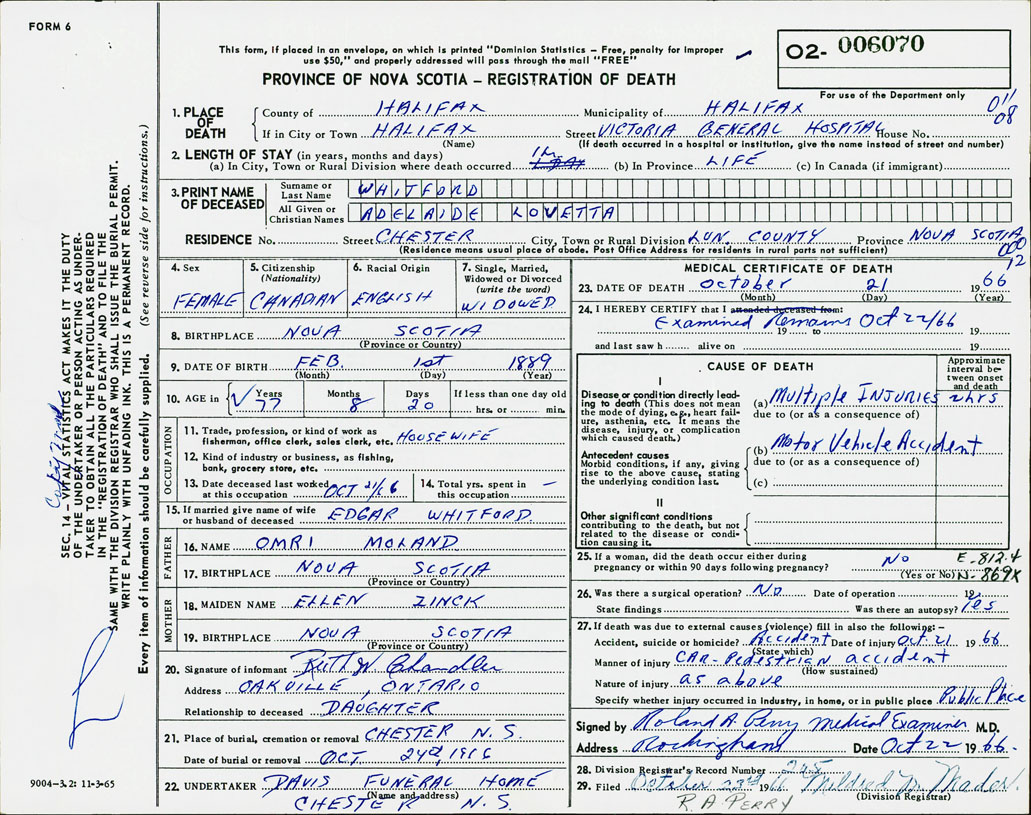 FORM 6
This form, if placed in an envelope, on which is printed "Dominion Statistics – Free, penalty for improper
use $50," and properly addressed will pass through the mail "FREE"
02- 006070
PROVINCE OF NOVA SCOTIA – REGISTRATION OF DEATH
For use of the Department only
011
08
1. PLACE OF DEATH
County of HALIFAX Municipality of HALIFAX
If in City or Town HALIFAX Street VICTORIA GENERAL HOSPITAL House No.
(Name) (If death occurred in a hospital or institution, give the name instead of street and number)
2. LENGTH OF STAY (in years, months and days)
(a) In City, Town or Rural Division where death occurred (b) In Province LIFE (c) In Canada (if immigrant)
3. PRINT NAME OF DECEASED
Surname or Last Name WHITFORD
All Given or Christian Names ADELAIDE LOVETTA
RESIDENCE No. Street CHESTER City, Town or Rural Division LUN. COUNTY Province NOVA SCOTIA
(Residence means usual place of abode. Post Office Address for residents in rural parts not sufficient)
000
12
4. Sex FEMALE
5. Citizenship (Nationality) CANADIAN
6. Racial Origin ENGLISH
7. Single, Married, Widowed or Divorced (write the word) WIDOWED
8. BIRTHPLACE NOVA SCOTIA
(Province or Country)
9. DATE OF BIRTH FEB. 1st 1889
(Month) (Day) (Year)
10. AGE in Years 77 Months 8 Days 20 If less than one day old
hrs. or min.
OCCUPATION
11. Trade, profession, or kind of work as
fisherman, office clerk, sales clerk, etc. HOUSEWIFE
12. Kind of industry or business, as fishing,
bank, grocery store, etc.
13. Date deceased last worked at this occupation OCT 21/66
14. Total yrs. spent in this occupation –
15. If married give name of wife
or husband of deceased EDGAR WHITFORD
FATHER
16. NAME OMRI MOLAND
17. BIRTHPLACE NOVA SCOTIA
(Province or Country)
MOTHER
18. MAIDEN NAME ELLEN ZINCK
19. BIRTHPLACE NOVA SCOTIA
(Province or Country)
20. Signature of informant Ruth W Chandler
Address OAKVILLE, ONTARIO
Relationship to deceased DAUGHTER
21. Place of burial, cremation or removal CHESTER N.S.
Date of burial or removal OCT. 24th,
22. UNDERTAKER DAVIS FUNERAL HOME
(Name and address)
CHESTER N.S.
MEDICAL CERTIFICATE OF DEATH
23. DATE OF DEATH October 21 1966
(Month) (Day) (Year)
24. I HEREBY CERTIFY that I attended deceased from:
Examined Remains Oct 22/66
19 to 19
and last saw h alive on 19
CAUSE OF DEATH
Approximate interval between onset and death
I
Disease or condition directly leading to death (This does not mean
the mode of dying, e.g., heart failure, asthenia, etc. It means the
disease, injury, or complication which caused death.)
(a) Multiple INJURIES 2hrs
due to (or as a consequence of)
Antecedent causes
Morbid conditions, if any, giving rise to the above cause, stating
the underlying condition last.
(b) Motor Vehicle Accident
due to (or as a consequence of)
(c)
II
Other significant conditions
contributing to the death, but not
related to the disease or condition causing it.
25. If a woman, did the death occur either during
pregnancy or within 90 days following pregnancy? No
(Yes or No)
E-812.4
N-869X
26. Was there a surgical operation? No Date of operation 19
State findings Was there an autopsy? Yes
27. If death was due to external causes (violence) fill in also the following: –
Accident, suicide or homicide? Accident Date of injury Oct. 21 1966
(State which)
Manner of injury CAR-Pedestrian accident
(How sustained)
Nature of injury as above
Specify whether injury occurred in Industry, in home, or in public place Public Place
Signed by Roland A. Perry Medical Examiner M.D.
Address Rockingham Date Oct 22 1966
28. Division Registrar's Record Number
29. Filed October 1966 Mildred M. Mader.
(Division Registrar)
R.A. PERRY
SEC. 14 – VITAL STATISTICS ACT MAKES IT THE DUTY
OF THE UNDERTAKER OR PERSON ACTING AS UNDER-
TAKER TO OBTAIN ALL THE PARTICULARS REQUIRED
IN THE "REGISTRATION OF DEATH" AND TO FILE THE
SAME WITH THE DIVISION REGISTRAR WHO SHALL ISSUE THE BURIAL PERMIT.
WRITE PLAINLY WITH UNFADING INK. THIS IS A PERMANENT RECORD.
Every item of information should be carefully supplied. (See reverse side for instructions.)
9004–3.2: 11-3-65